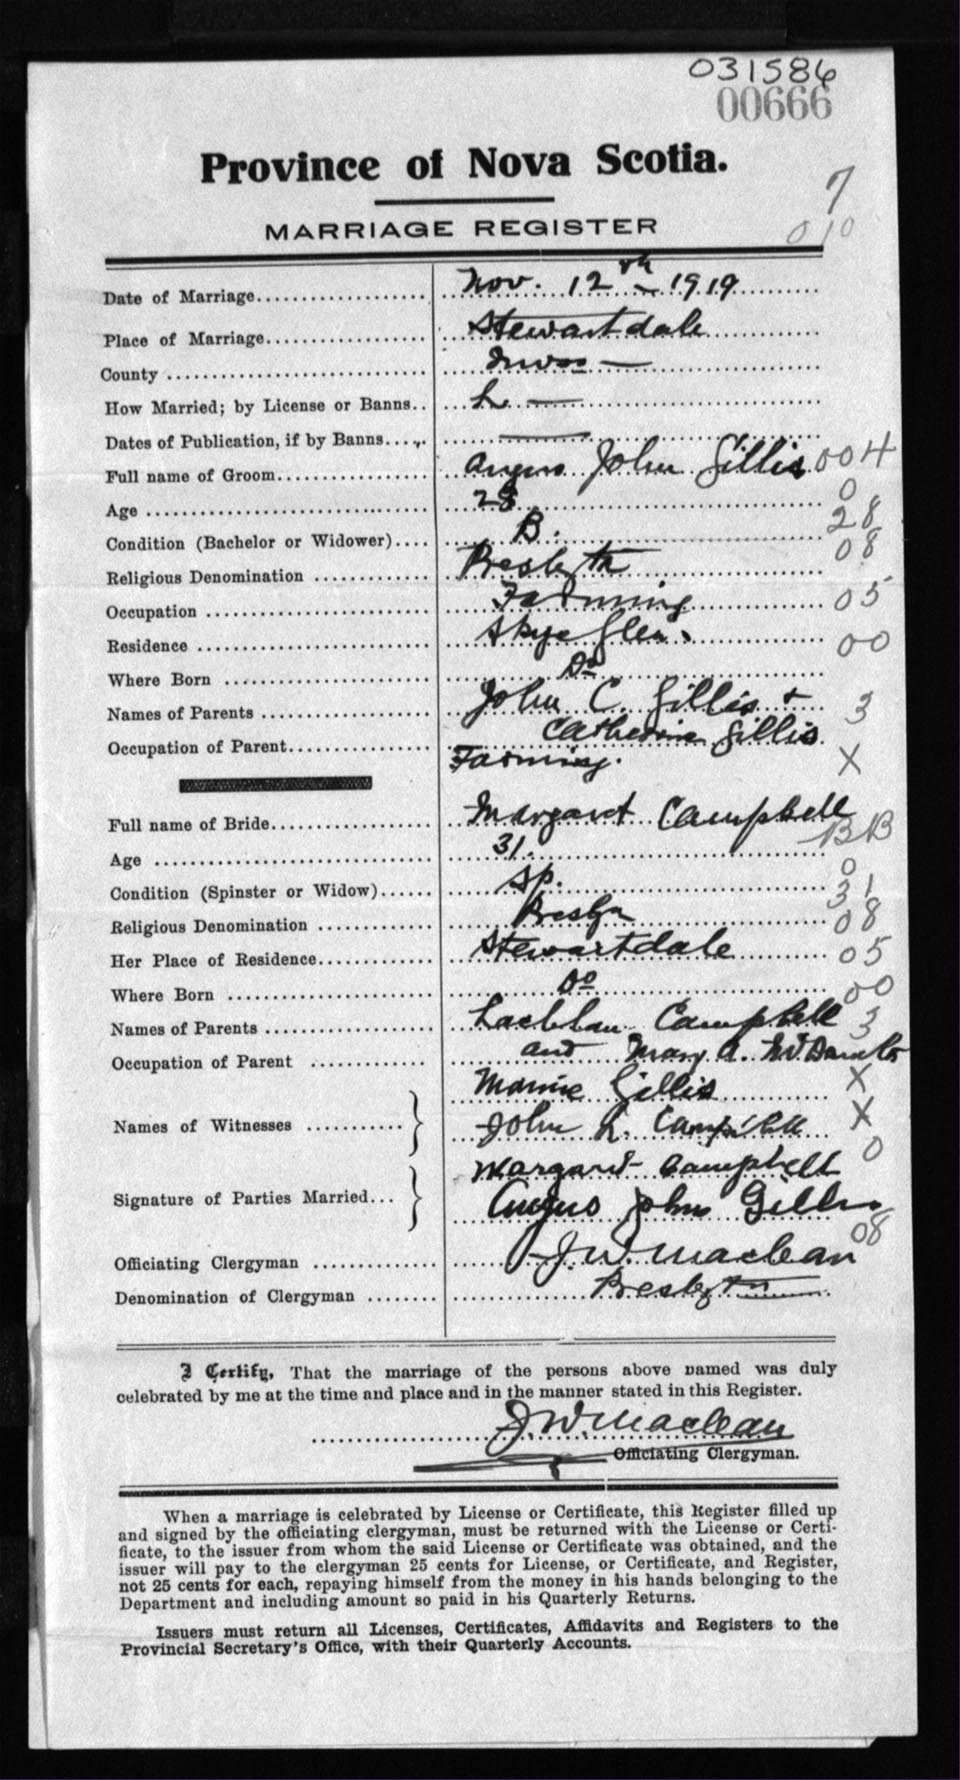 031586
00666
Province of Nova Scotia.
7
MARRIAGE REGISTER
010
Date of Marriage Nov. 12th 1919
Place of Marriage Stewartdale
County Invss —
How Married; by License or Banns.. L —
Dates of Publication, if by Banns —
Full name of Groom Angus John Gillis 004
Age 28 0
Condition (Bachelor or Widower) B. 28
Religious Denomination Presbytn 08
Occupation Farming 05
Residence Skye Glen. 00
Where Born Do
Names of Parents John C. Gillis + 3
Occupation of Parent Catherine Gillis
Farming. X
Full name of Bride Margaret Campbell
Age 31. BB
Condition (Spinster or Widow) Sp. 0
31
Religious Denomination Presbyn 08
Her Place of Residence Stewartdale 05
Where Born Do 00
Names of Parents Lachlan Campbell 3
Occupation of Parent and Mary A.
Mamie Gillis X
Names of Witnesses John L. Campbell X
Margaret Campbell 0
Signature of Parties Married... Angus John Gillis
08
Officiating Clergyman J. W. Maclean
Denomination of Clergyman Presbytn
I Certify, That the marriage of the persons above named was duly
celebrated by me at the time and place and in the manner stated in this Register.
J. W. Maclean
Officiating Clergyman.
When a marriage is celebrated by License or Certificate, this Register filled up
and signed by the officiating clergyman, must be returned with the License or Certi-
ficate, to the issuer from whom the said License or Certificate was obtained, and the
issuer will pay to the clergyman 25 cents for License, or Certificate, and Register,
not 25 cents for each, repaying himself from the money in his hands belonging to the
Department and including amount so paid in his Quarterly Returns.
Issuers must return all Licenses, Certificates, Affidavits and Registers to the
Provincial Secretary's Office, with their Quarterly Accounts.